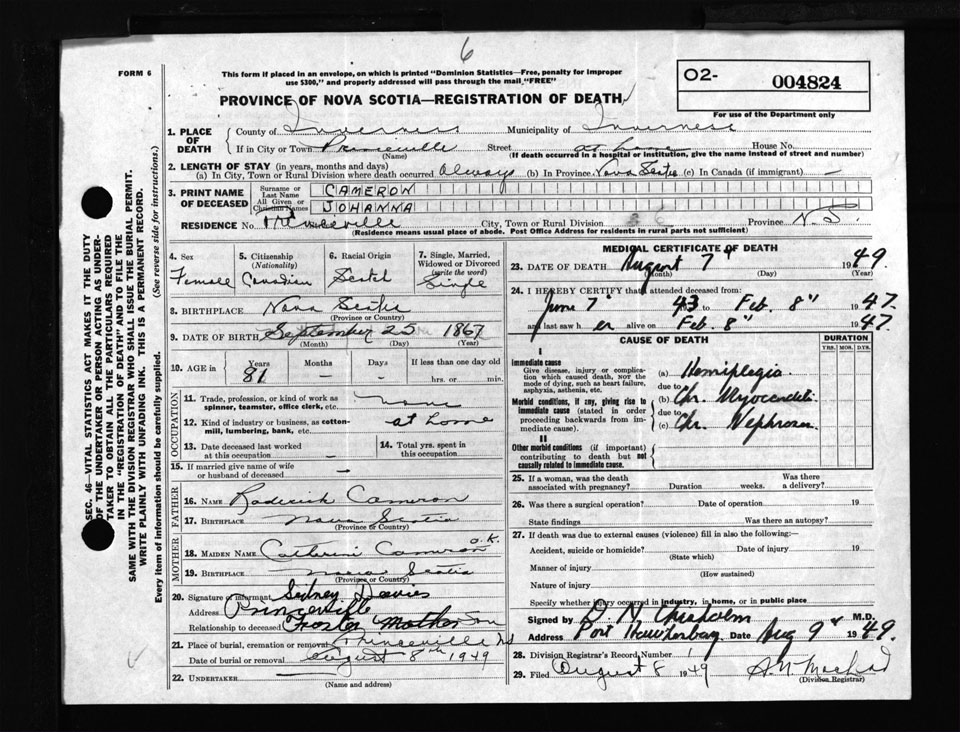 6
FORM 6
This form if placed in an envelope, on which is printed "Dominion Statistics—Free, penalty for improper
use $300," and properly addressed will pass through the mail "FREE"
O2- 004824
For use of the Department only
PROVINCE OF NOVA SCOTIA—REGISTRATION OF DEATH
1. PLACE OF DEATH
County of Inverness Municipality of Inverness
If in City or Town Princeville Street at home House No.
(Name) (If death occurred in a hospital or institution, give the name instead of street and number)
2. LENGTH OF STAY (in years, months and days)
(a) In City, Town or Rural Division where death occurred Always (b) In Province Nova Scotia (c) In Canada (if immigrant) —
3. PRINT NAME OF DECEASED
Surname or Last Name CAMERON
All Given or Christian Names JOHANNA
RESIDENCE No. Princeville City, Town or Rural Division Province N.S.
(Residence means usual place of abode. Post Office Address for residents in rural parts not sufficient)
4. Sex Female
5. Citizenship (Nationality) Canadian
6. Racial Origin Scotch
7. Single, Married, Widowed or Divorced (write the word) Single
8. BIRTHPLACE Nova Scotia
(Province or Country)
9. DATE OF BIRTH September 25 1867
(Month) (Day) (Year)
10. AGE in Years 81 Months – Days – If less than one day old hrs. or min.
OCCUPATION
11. Trade, profession, or kind of work as spinner, teamster, office clerk, etc. None
12. Kind of industry or business, as cotton-mill, lumbering, bank, etc. at home
13. Date deceased last worked at this occupation —
14. Total yrs. spent in this occupation
15. If married give name of wife or husband of deceased —
FATHER
16. NAME Roderick Cameron
17. BIRTHPLACE Nova Scotia
(Province or Country)
MOTHER
18. MAIDEN NAME Catherine Cameron o.k.
19. BIRTHPLACE Nova Scotia
(Province or Country)
20. Signature of informant Sidney Davies
Address Princeville
Relationship to deceased Foster Mother Son
21. Place of burial, cremation or removal Princeville NS
Date of burial or removal August 8th 1949
22. UNDERTAKER —
(Name and address)
MEDICAL CERTIFICATE OF DEATH
23. DATE OF DEATH August 7" 1949.
(Month) (Day) (Year)
24. I HEREBY CERTIFY that I attended deceased from:
June 7" 43 to Feb. 8" 1947.
and last saw her alive on Feb. 8" 1947.
CAUSE OF DEATH DURATION
YRS. MOS. DYS.
I
Immediate cause
Give disease, injury or complication which caused death, NOT the mode of dying, such as heart failure, asphyxia, asthenia, etc.
(a) Hemiplegia
due to
Morbid conditions, if any, giving rise to immediate cause (stated in order proceeding backwards from immediate cause).
(b) Chr. Myocarditis
due to
(c) Chr. Nephrosis
II
Other morbid conditions (if important) contributing to death but not causally related to immediate cause.
25. If a woman, was the death associated with pregnancy? Duration weeks. Was there a delivery?
26. Was there a surgical operation? Date of operation 19
State findings Was there an autopsy?
27. If death was due to external causes (violence) fill in also the following:—
Accident, suicide or homicide? Date of injury 19
(State which)
Manner of injury
(How sustained)
Nature of injury
Specify whether injury occurred in industry, in home, or in public place
Signed by M. Chisholm M.D.
Address Port Hawkesbury Date Aug 9" 1949.
28. Division Registrar's Record Number 1
29. Filed August 8 1949
(Division Registrar)
SEC. 46—VITAL STATISTICS ACT MAKES IT THE DUTY
OF THE UNDERTAKER OR PERSON ACTING AS UNDER-
TAKER TO OBTAIN ALL THE PARTICULARS REQUIRED
IN THE "REGISTRATION OF DEATH" AND TO FILE THE
SAME WITH THE DIVISION REGISTRAR WHO SHALL ISSUE THE BURIAL PERMIT.
WRITE PLAINLY WITH UNFADING INK. THIS IS A PERMANENT RECORD.
Every item of information should be carefully supplied. (See reverse side for instructions.)